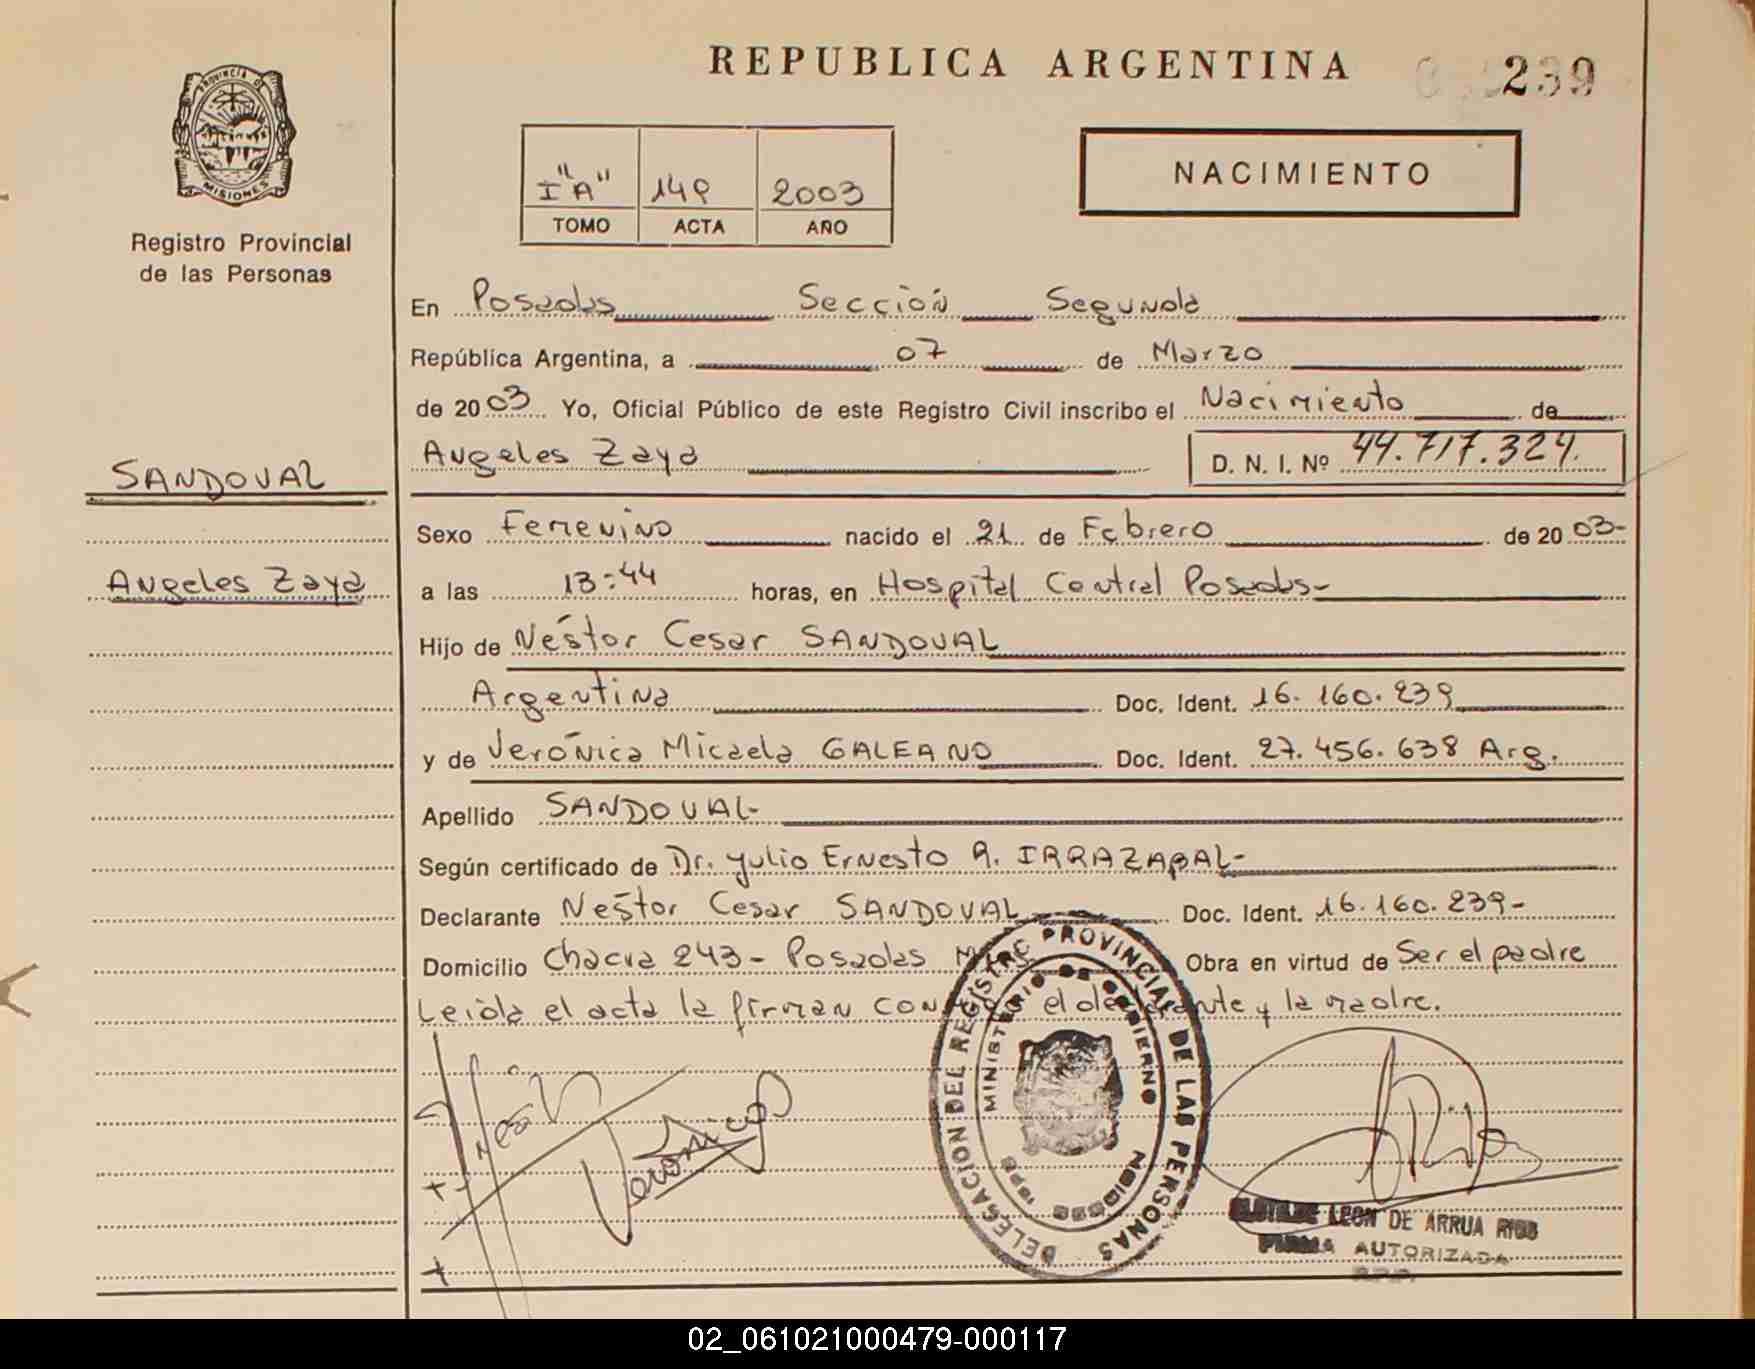 REPUBLICA ARGENTINA
239
PROVINCIA DE
MISIONES
Registro Provincial
de las Personas
I "A" 149 2003
TOMO ACTA AÑO
NACIMIENTO
En Posadas Sección Segunda
República Argentina, a 07 de Marzo
de 2003 Yo, Oficial Público de este Registro Civil inscribo el Nacimiento de
Angeles Zaya D. N. I. Nº 44.717.324.
SANDOVAL
Angeles Zaya
Sexo Femenino nacido el 21 de Febrero de 2003-
a las 13:44 horas, en Hospital Central Posadas-
Hijo de Néstor Cesar SANDOVAL
Argentina Doc. Ident. 16.160.239
y de Verónica Micaela GALEANO Doc. Ident. 27.456.638 Arg.
Apellido SANDOVAL-
Según certificado de Dr. Julio Ernesto R. IRRAZABAL-
Declarante Nestor Cesar SANDOVAL Doc. Ident. 16.160.239-
Domicilio Chacra 243- Posadas Obra en virtud de Ser el padre
Leida el acta la firman el declarante y la madre.
DELEGACION DEL REGISTRO PROVINCIAL DE LAS PERSONAS
MINISTERIO DE GOBIERNO
Veronica
LEON DE ARRUA RIOS
FIRMA AUTORIZADA
02_061021000479-000117